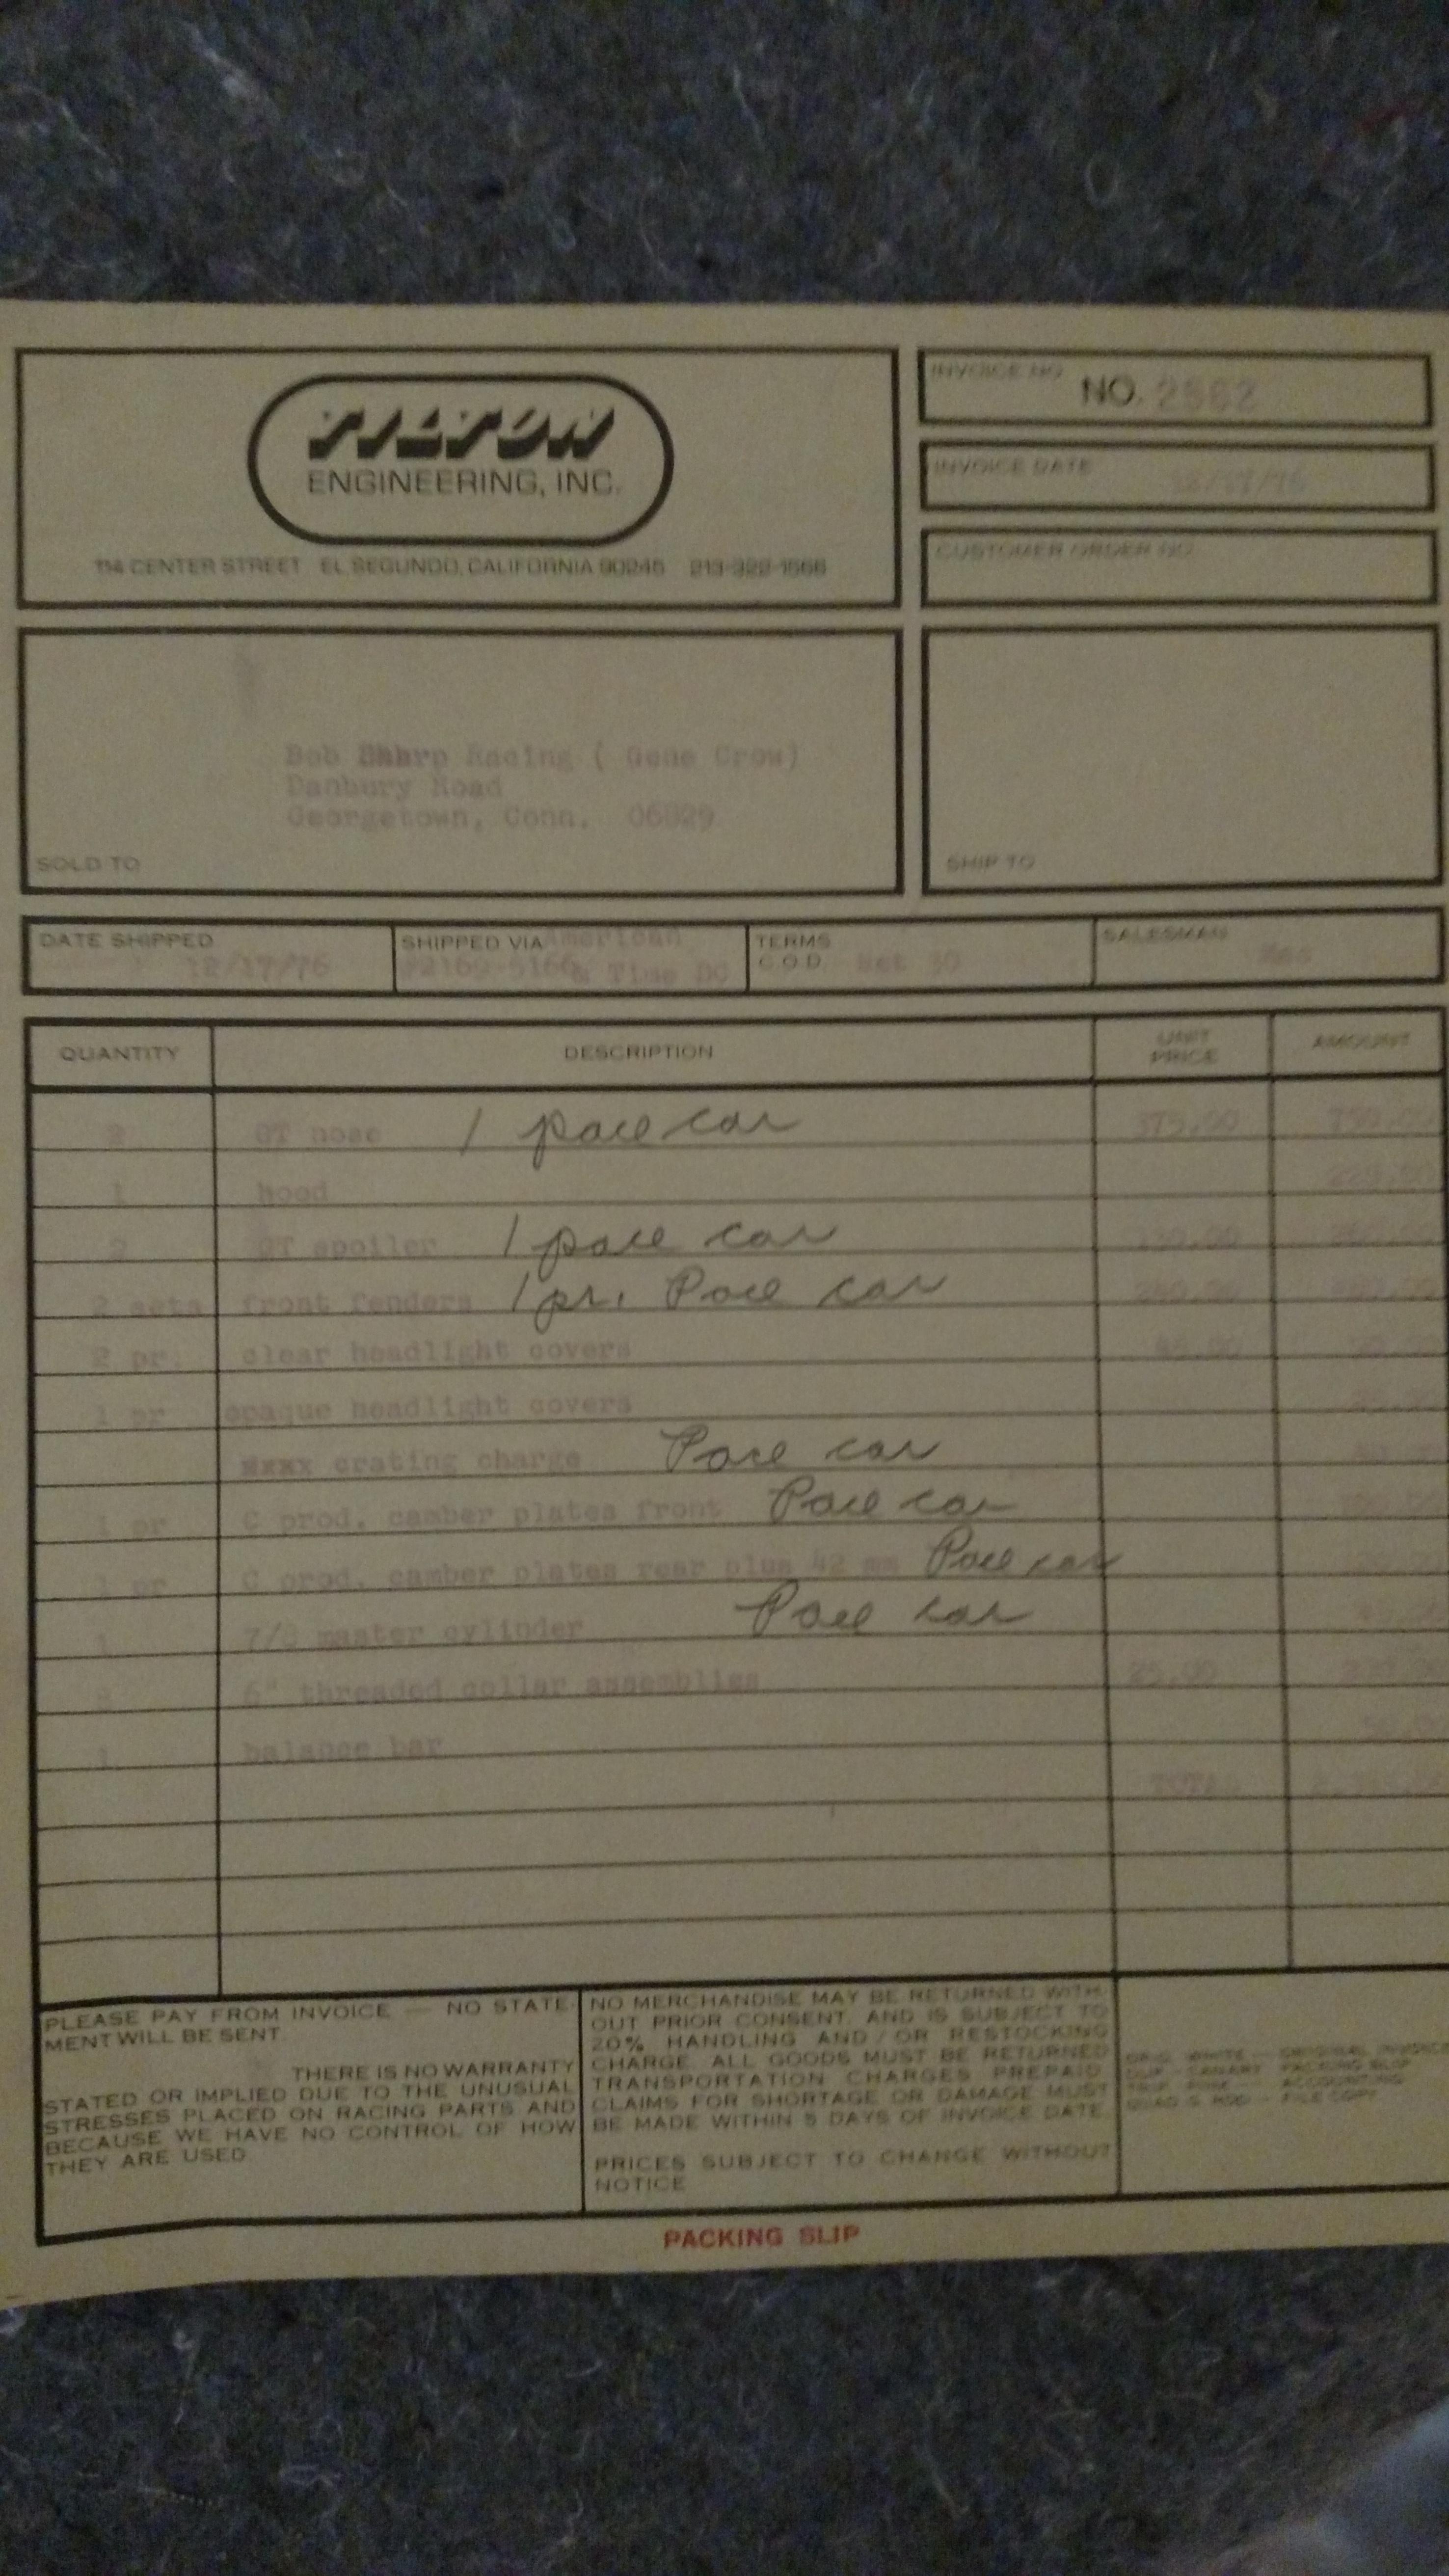 TILTON
ENGINEERING, INC.
114 CENTER STREET EL SEGUNDO, CALIFORNIA 90245 213-322-1566
INVOICE NO
NO.
INVOICE DATE
12/17/76
CUSTOMER ORDER NO
Bob Sharp Racing ( Gene Crow)
Danbury Road
Georgetown, Conn. 06829
SOLD TO
SHIP TO
DATE SHIPPED
12/17/76
SHIPPED VIA American
& Time DC
TERMS
C.O.D. Net 30
SALESMAN
QUANTITY DESCRIPTION UNIT PRICE AMOUNT
2 GT nose 1 pace car 375.00 750.00
1 hood
2 GT spoiler 1 pace car
2 sets front fenders 1 pr. Pace car
2 pr. clear headlight covers
1 pr opaque headlight covers
crating charge Pace car
1 pr C prod. camber plates front Pace car
1 pr C prod. camber plates rear plus 42 mm Pace car
1 7/8 master cylinder Pace car
6" threaded collar assemblies 25.00
1 balance bar
TOTAL
PLEASE PAY FROM INVOICE — NO STATE-
MENT WILL BE SENT
THERE IS NO WARRANTY
STATED OR IMPLIED DUE TO THE UNUSUAL
STRESSES PLACED ON RACING PARTS AND
BECAUSE WE HAVE NO CONTROL OF HOW
THEY ARE USED
NO MERCHANDISE MAY BE RETURNED WITH-
OUT PRIOR CONSENT, AND IS SUBJECT TO
20% HANDLING AND/OR RESTOCKING
CHARGE. ALL GOODS MUST BE RETURNED
TRANSPORTATION CHARGES PREPAID
CLAIMS FOR SHORTAGE OR DAMAGE MUST
BE MADE WITHIN 5 DAYS OF INVOICE DATE
PRICES SUBJECT TO CHANGE WITHOUT
NOTICE
ORIG. WHITE — ORIGINAL INVOICE
DUP. — CANARY — PACKING SLIP
TRIP. PINK — ACCOUNTING
— FILE COPY
PACKING SLIP